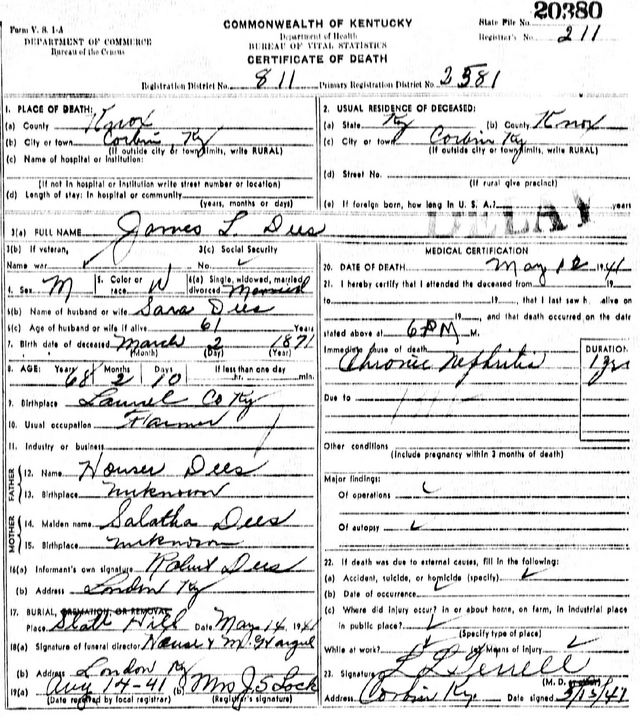 20380
Form V. S. 1-A
DEPARTMENT OF COMMERCE
Bureau of the Census
COMMONWEALTH OF KENTUCKY
Department of Health
BUREAU OF VITAL STATISTICS
CERTIFICATE OF DEATH
State File No.
Registrar's No. 211
Registration District No. 811 Primary Registration District No. 2581
1. PLACE OF DEATH:
(a) County Knox
(b) City or town Corbin, Ky
(If outside city or town limits, write RURAL)
(c) Name of hospital or institution:
(If not in hospital or institution write street number or location)
(d) Length of stay: In hospital or community
(years, months or days)
2. USUAL RESIDENCE OF DECEASED:
(a) State Ky (b) County Knox
(c) City or town Corbin Ky
(If outside city or town limits, write RURAL)
(d) Street No.
(If rural give precinct)
(e) If foreign born, how long in U. S. A.? years
DELAY
3(a) FULL NAME James L Dees
3(b) If veteran, 3(c) Social Security
Name war No.
4. Sex M 5. Color or race W 6(a) Single, widowed, married divorced Married
6(b) Name of husband or wife Sara Dees
6(c) Age of husband or wife if alive 61 Years
7. Birth date of deceased March 2 1871
(Month) (Day) (Year)
8. AGE: Years Months Days If less than one day
68 2 10 hr. min.
9. Birthplace Laurel Co Ky
10. Usual occupation Farmer
11. Industry or business
FATHER
12. Name Houser Dees
13. Birthplace unknown
MOTHER
14. Maiden name Salatha Dees
15. Birthplace unknown
16(a) Informant's own signature Robert Dees
(b) Address London Ky
17. BURIAL, CREMATION, OR REMOVAL
Place Slate Hill Date May 14 1941
18(a) Signature of funeral director House &
(b) Address London Ky
19(a) Aug 14-41 (b) Mrs J S Lock
(Date received by local registrar) (Registrar's signature)
MEDICAL CERTIFICATION
20. DATE OF DEATH May 12 1941
21. I hereby certify that I attended the deceased from 19
to 19, that I last saw h alive on
19, and that death occurred on the date
stated above at 6 PM M.
Immediate cause of death DURATION
Chronic Nephritis
Due to
Other conditions
(Include pregnancy within 3 months of death)
Major findings:
Of operations
Of autopsy
22. If death was due to external causes, fill in the following:
(a) Accident, suicide, or homicide (specify)
(b) Date of occurrence
(c) Where did injury occur? In or about home, on farm, in industrial place
in public place?
(Specify type of place)
While at work? (e) Means of injury
23. Signature L L Terrell
(M. D.
Address Corbin Ky. Date signed 5/13/41